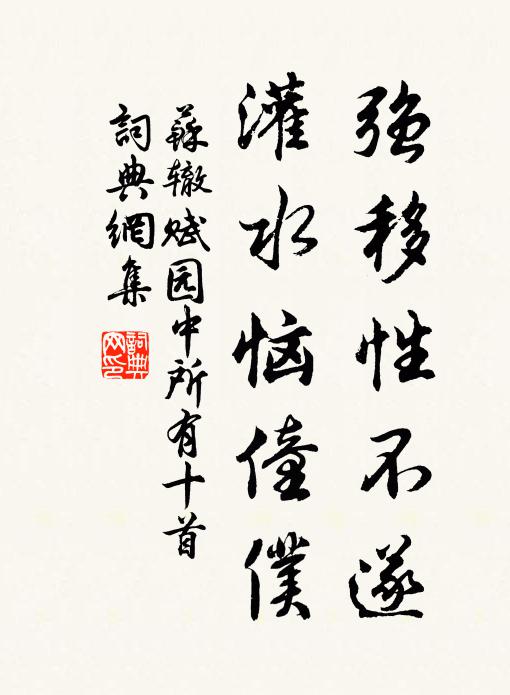 强移性不遂
灌水恼僮僕
蘇辙赋园中所有十首
詞典網集
詞典
网印